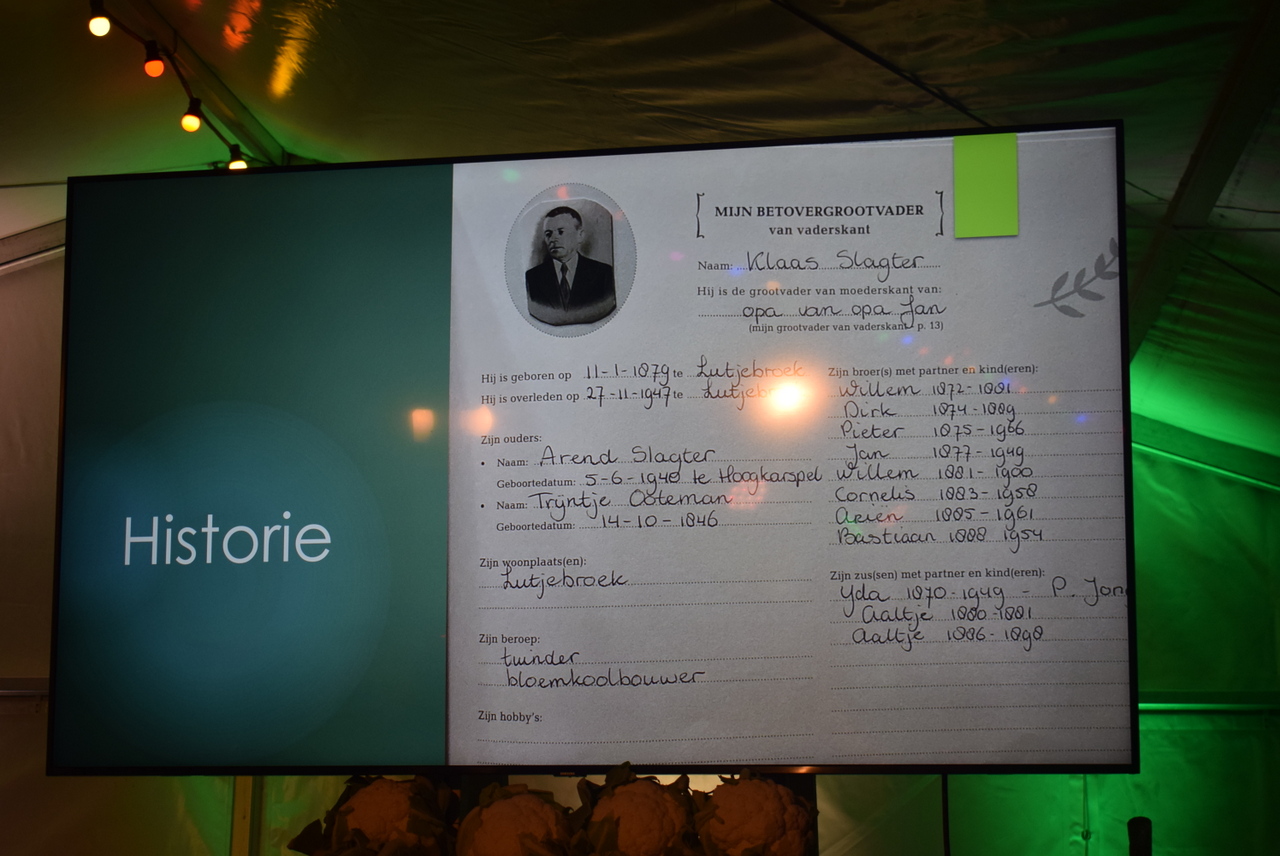 Historie
MIJN BETOVERGROOTVADER
van vaderskant
Naam: Klaas Slagter
Hij is de grootvader van moederskant van:
opa van opa Jan
(mijn grootvader van vaderskant p. 13)
Hij is geboren op 11-1-1879 te Lutjebroek
Hij is overleden op 27-11-1947 te Lutjeb
Zijn ouders:
• Naam: Arend Slagter
Geboortedatum: 5-6-1940 te Hoogkarspel
• Naam: Trijntje Ooteman
Geboortedatum: 14-10-1846
Zijn woonplaats(en):
Lutjebroek
Zijn beroep:
tuinder
bloemkoolbouwer
Zijn hobby's:
Zijn broer(s) met partner en kind(eren):
Willem 1872-1881
Dirk 1874-1889
Pieter 1875-1966
Jan 1877-1949
Willem 1881-1900
Cornelis 1883-1958
Ariën 1885-1961
Bastiaan 1888 1954
Zijn zus(sen) met partner en kind(eren):
Yda 1870-1949 - P. Jon
Aaltje 1880-1881
Aaltje 1886-1898